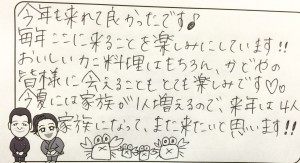 今年も来れて良かったです♪
毎年ここに来ることを楽しみにしています!!
おいしいカニ料理はもちろん、かどやの
皆様に会えることもとても楽しみです♡♡
今夏には家族が1人増えるので、来年は4人
家族になって、また来たいと思います!!